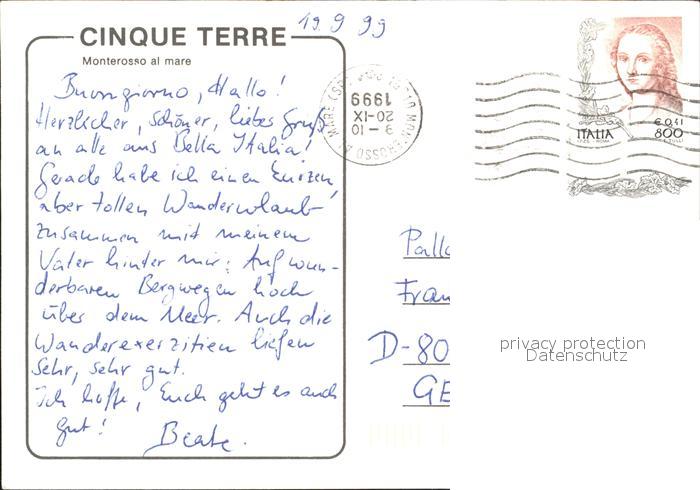 19 9 99
CINQUE TERRE
Monterosso al mare
Buongiorno, Hallo!
Herzlicher, schöner, liebes Gruß
an alle aus Bella Italia!
Gerade habe ich einen kurzen,
aber tollen Wanderurlaub
zusammen mit meinem
Vater hinter mir: Auf wun-
derbaren Bergwegen hoch
über dem Meer. Auch die
Wanderexerzitien liefen
sehr, sehr gut.
Ich hoffe, Euch geht es auch
gut!
Beate.
9-10
20-IX
1999
MONTEROSSO
MARE (SP)
€ 0,41
ITALIA 800
Fran
D-80
GE
privacy protection
Datenschutz